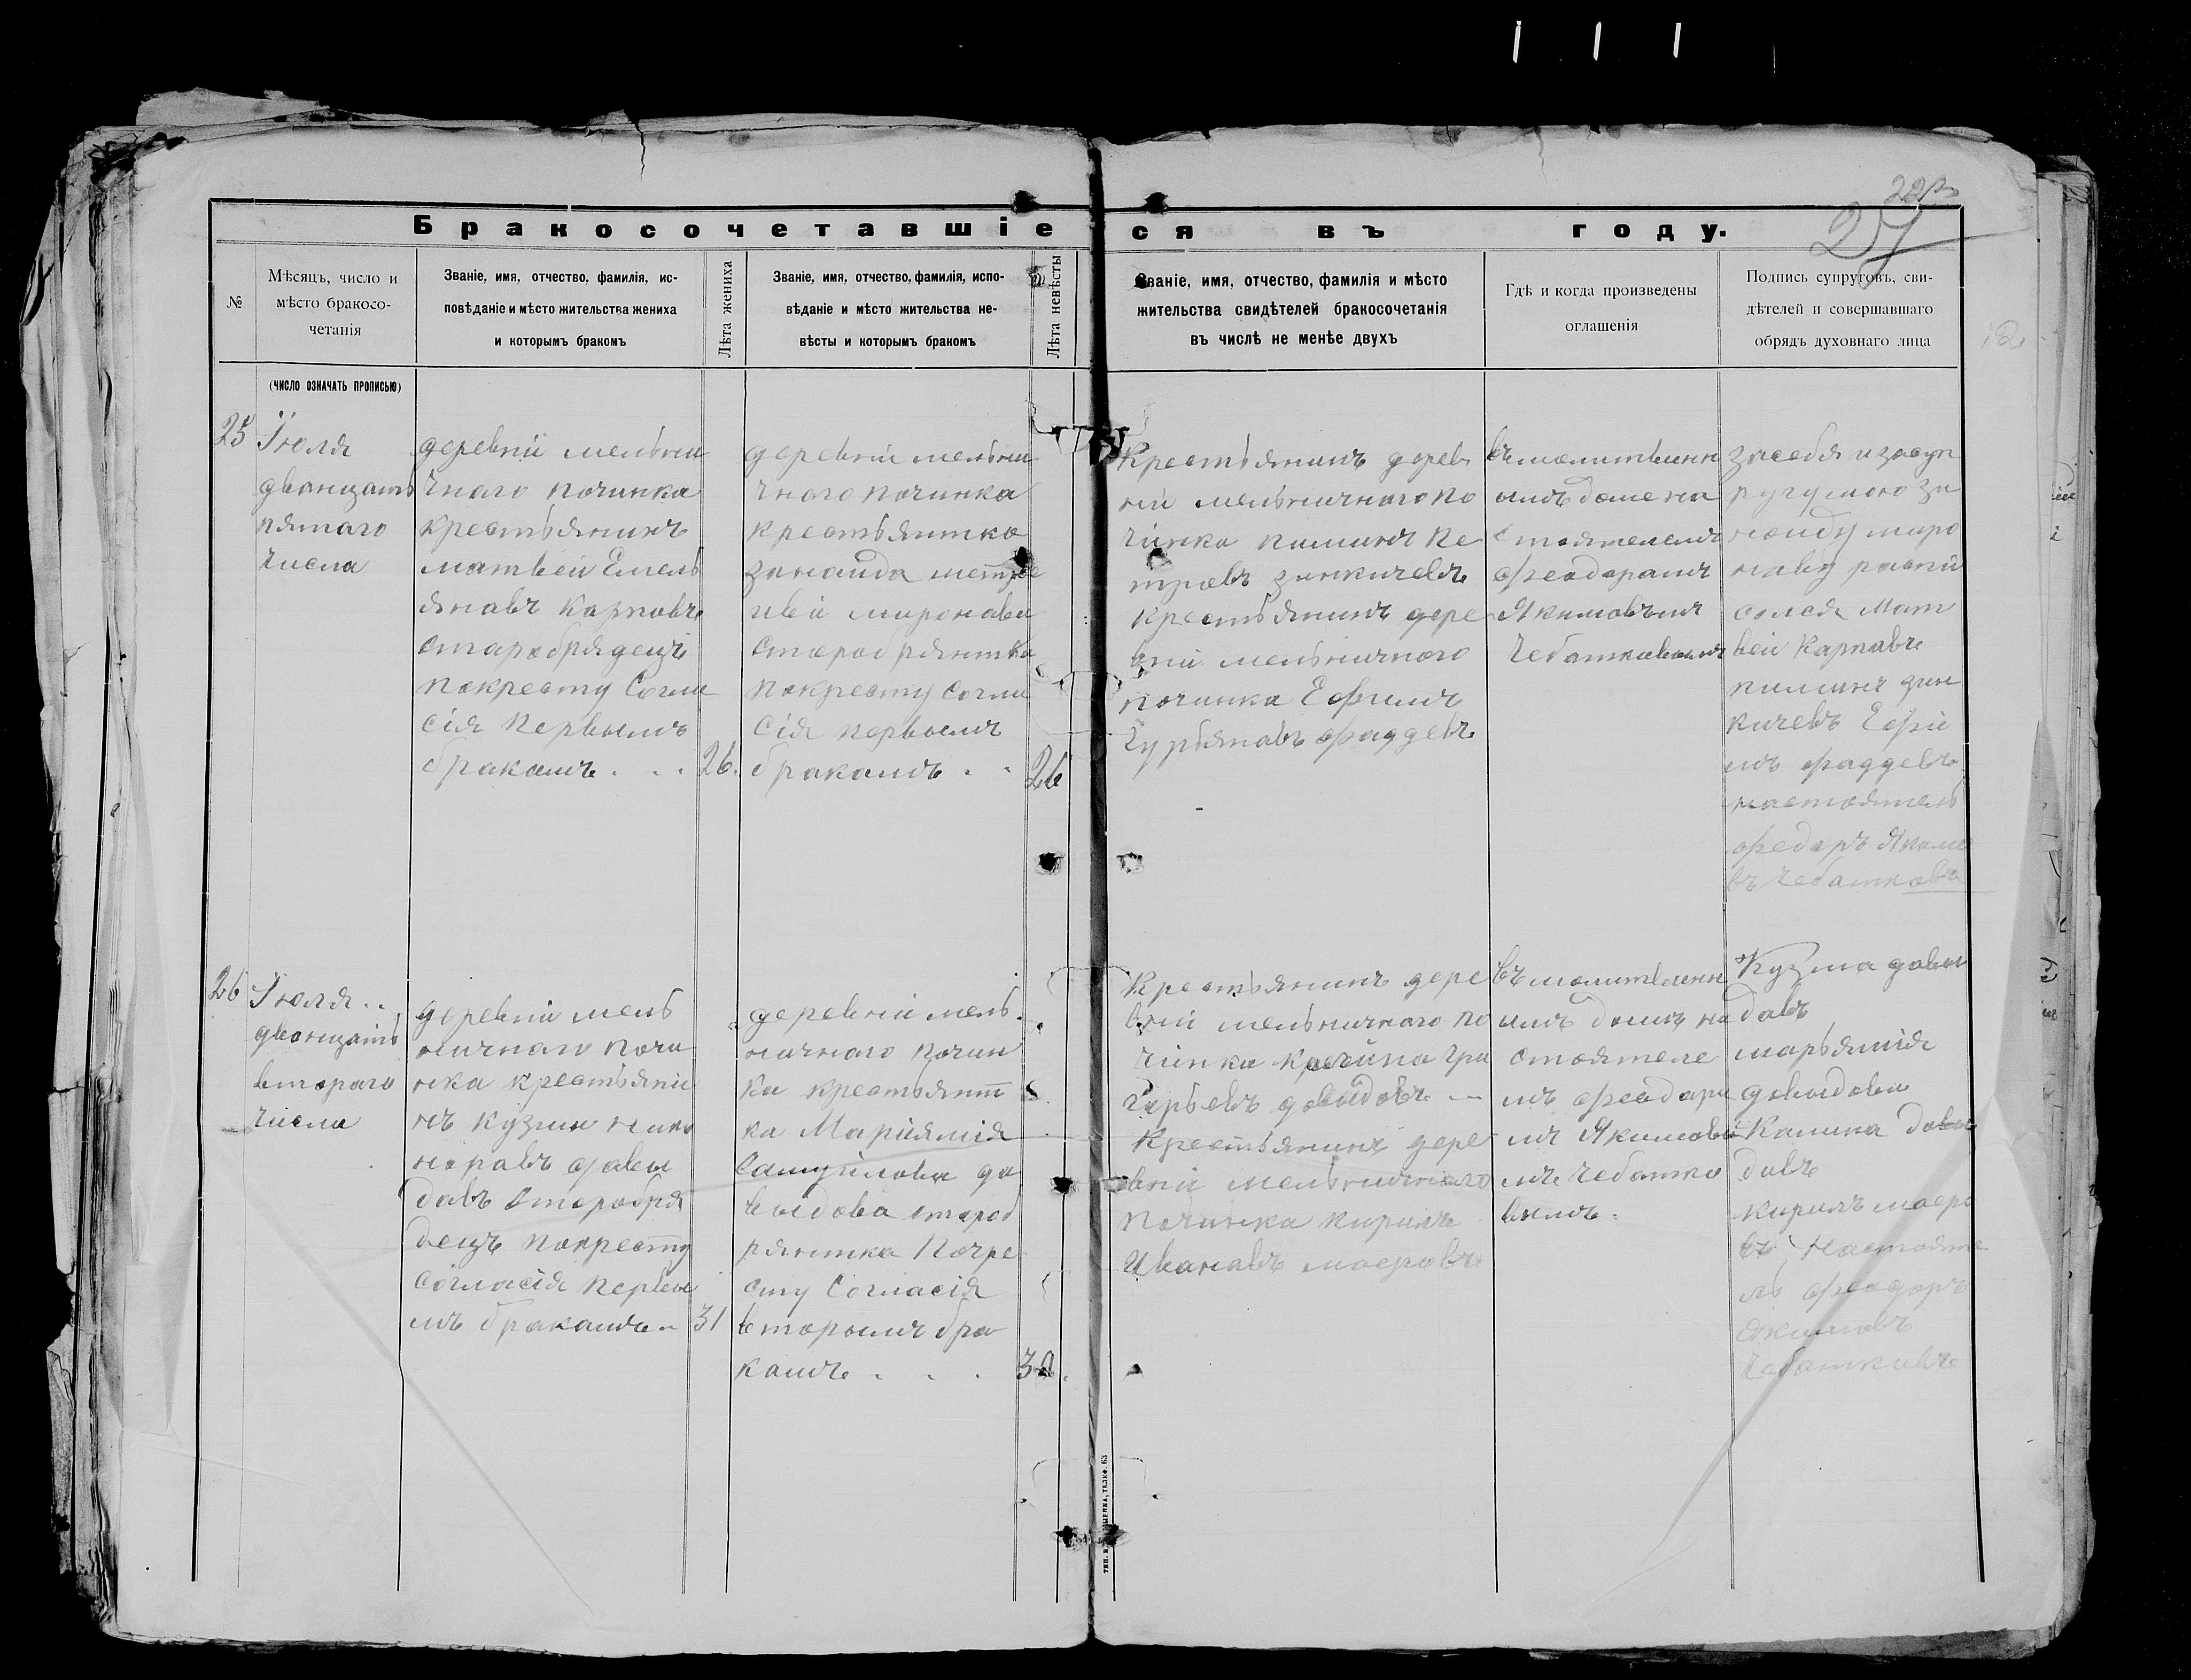 22 об
27
Бракосочетавшіеся въ году.
№
Мѣсяцъ, число и
мѣсто бракосо-
четанія
Званіе, имя, отчество, фамилія, ис-
повѣданіе и мѣсто жительства жениха
и которымъ бракомъ
Лѣта жениха
Званіе, имя, отчество, фамилія, испо-
вѣданіе и мѣсто жительства не-
вѣсты и которымъ бракомъ
Лѣта невѣсты
Званіе, имя, отчество, фамилія и мѣсто
жительства свидѣтелей бракосочетанія
въ числѣ не менѣе двухъ
Гдѣ и когда произведены
оглашенія
Подпись супруговъ, сви-
дѣтелей и совершавшаго
обрядъ духовнаго лица
(число означать прописью)
25
Іюля
дванцать
пятаго
числа
деревніи мельни
чнаго починка
крестьянинъ
матвеи Емель
янавъ карповъ
старобрядецъ
покресту Согла
сія первымъ
бракамъ . . .
26.
деревніи мельни
чнаго починка
крестьянтка
зинаида
миронава
старобрянтка
покресту согла
сія первымъ
бракамъ . .
26
Крестьянинъ дерев
ніи мельничнаго по
чинка пиминъ пе
тровъ зинкичевъ
крестьянинъ дере
вніи мельничного
починка Ефимъ
Гурьянавъ фаддевъ
въ молитвенн
ымъ доме на
стоятелемъ
феодорамъ
Якимовымъ
Чебатковымъ
за себя и за суп
ругу мою зи
наиду миро
наву
Мат
веи Карпавъ
пиминъ зин
кичевъ Ефи
мъ фаддевъ
настоятель
федаръ Якимо
въ чебатковъ
26
Іюля..
дванцать
втораго
числа
деревніи мель
ничнаго почи
нка крестьяни
нъ кузма ника
норавъ давы
давъ старобря
децъ покресту
согласія первы
мъ бракамъ..
31
деревніи мель
ничнаго почин
ка крестьянт
ка Маріямія
Самуилова да
выдова староб
рянтка Покре
сту Согласія
вторымъ бра
камъ . . .
30.
Крестьянинъ дере
вніи мельничнаго по
чинка Калина Гри
горьевъ давыдовъ —
Крестьянинъ дере
вніи мельничнаго
починка кирилъ
Иванавъ масровъ
въ молитвенн
ымъ домъ на
стоятеле
мъ феодара
мъ Якимовы
мъ чебатко
вымъ.
Кузма давы
давъ
марьямія
давыдова
Калина давы
давъ
кирилъ масро
въ настояте
ль феодоръ
Якимовъ
Чебатковъ